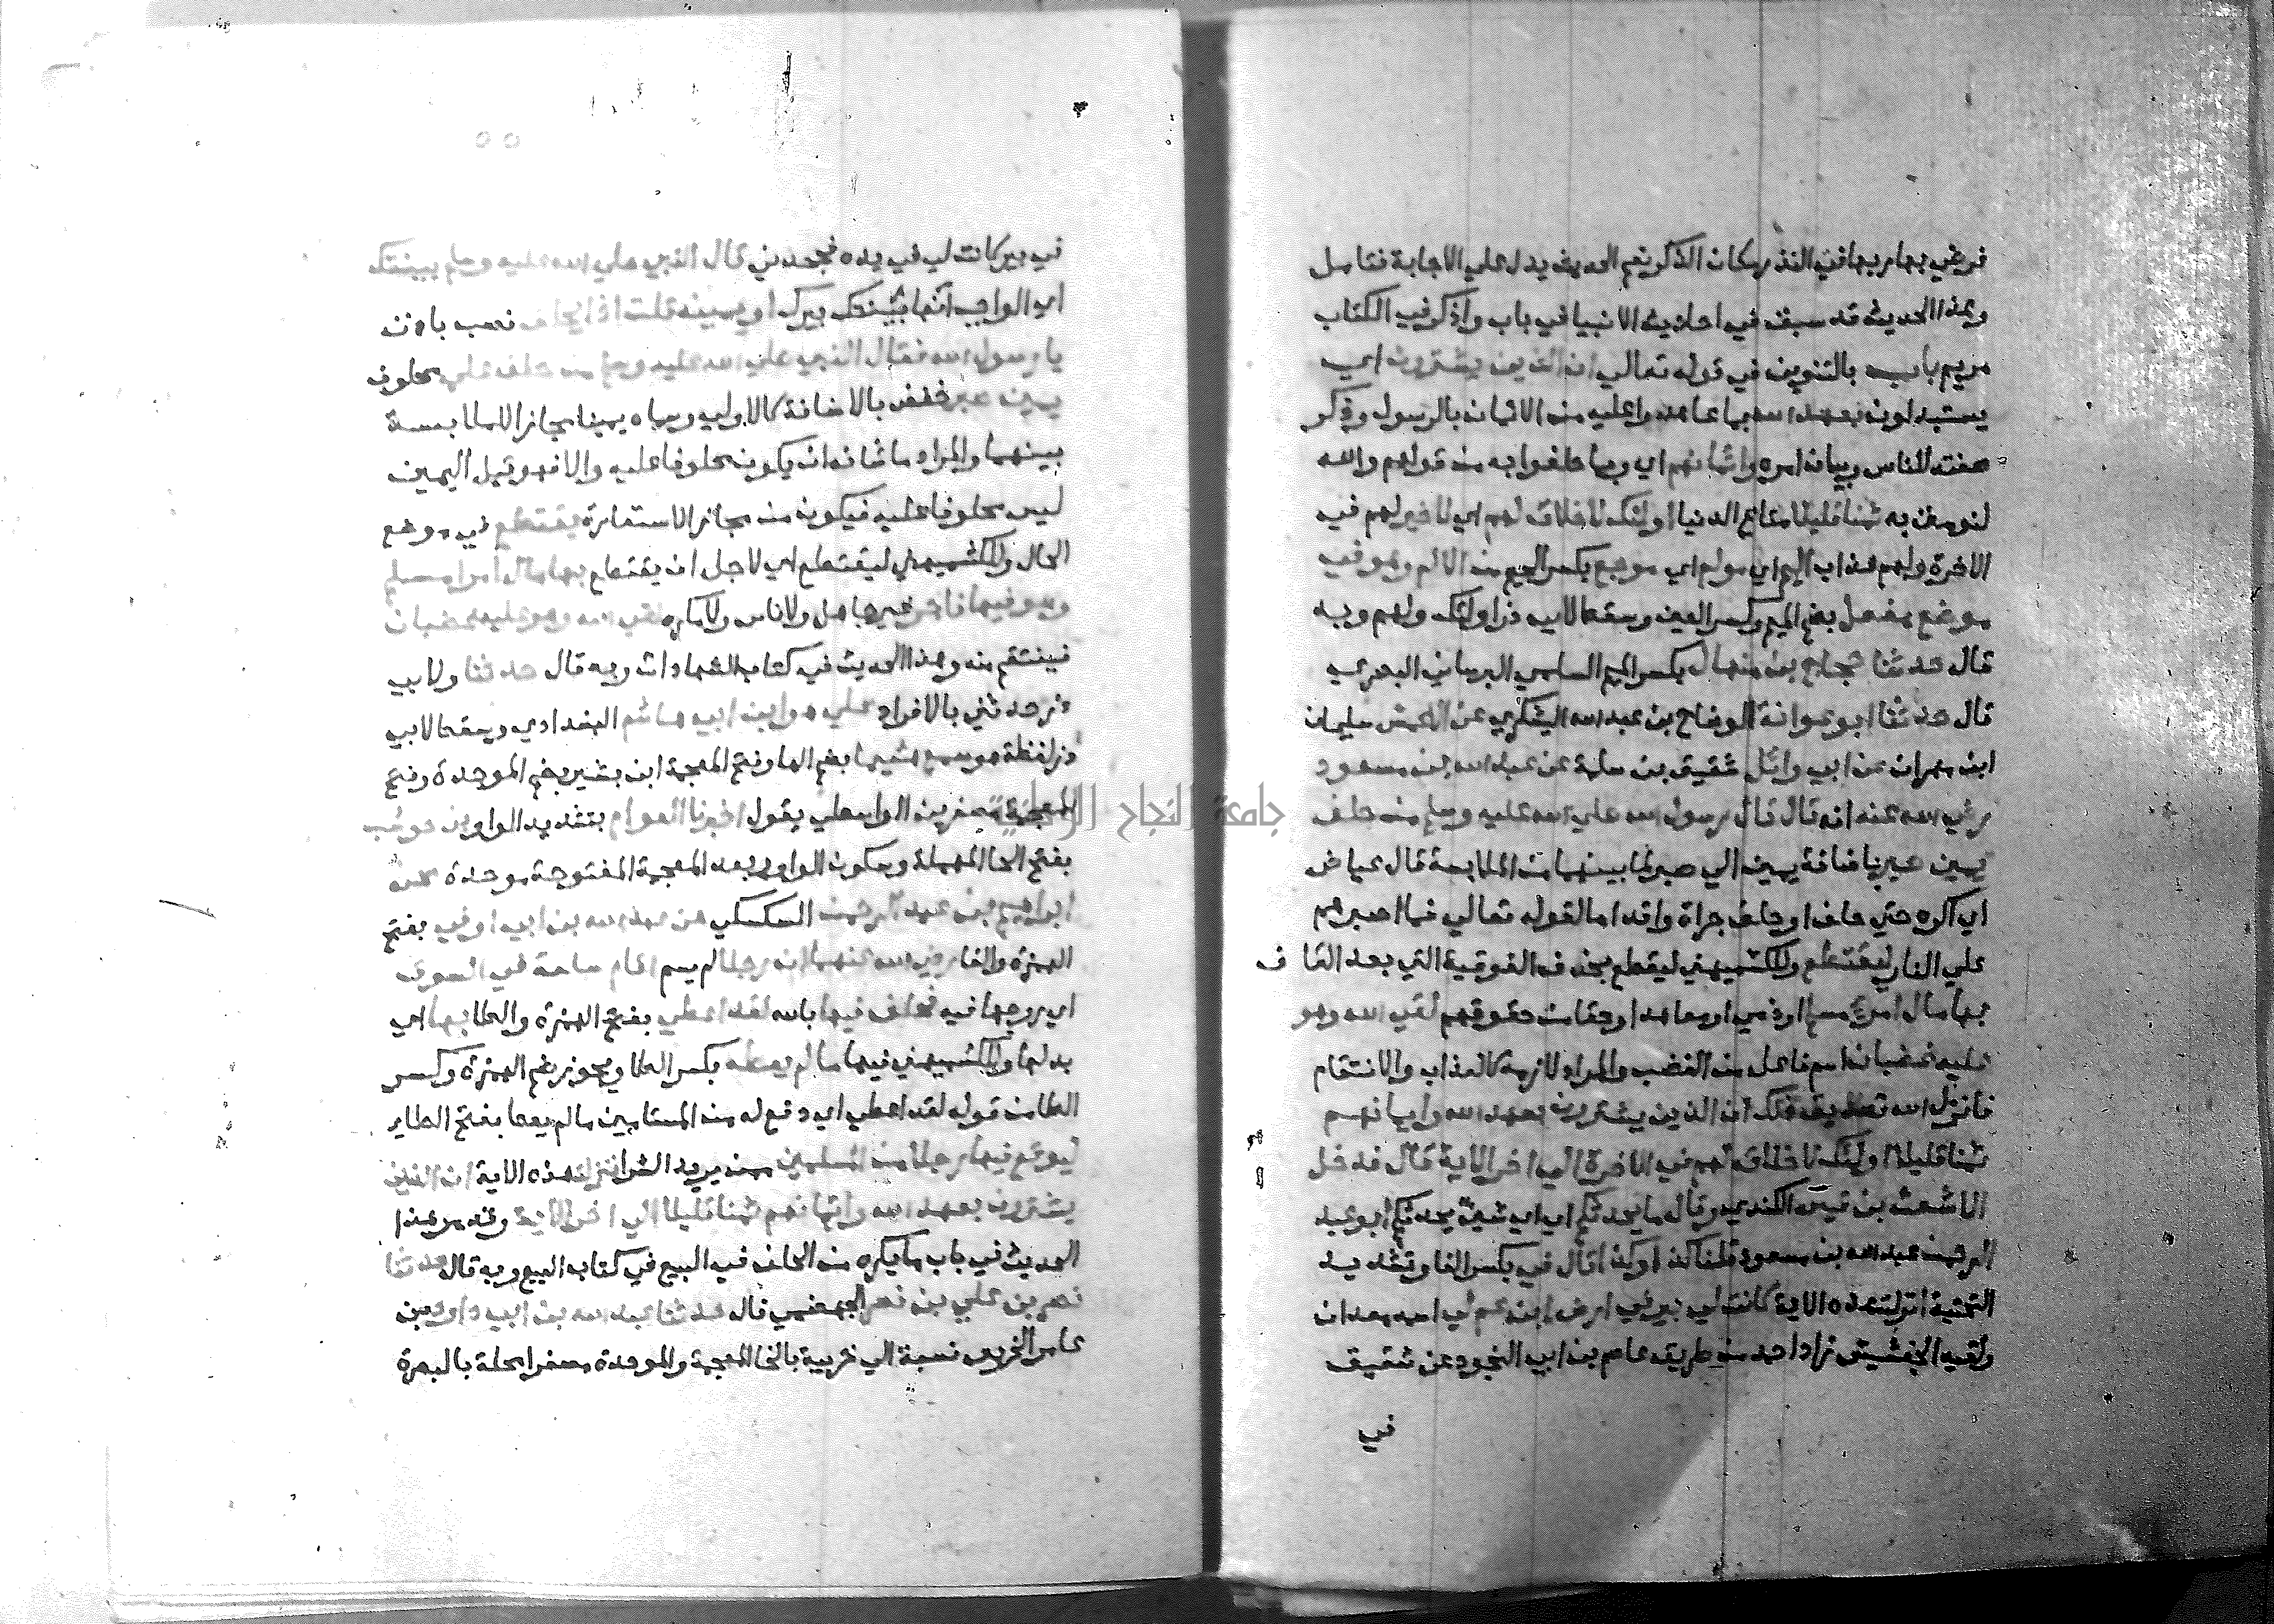 فرضي بها ربها في النذر مكان الذكر نعم الحديث يدل علي الاجابة فتامل
وهذا الحديث قد سبق في احاديث الانبيا في باب واذكر في الكتاب
مريم باب بالتنوين في قوله تعالي ان الذين يشترون اي
يستبدلون بعهد الله بما عاهدوا عليه من الايمان بالرسول وذكر
صفته للناس وبيان امره وايمانهم اي وبما حلفوا به من قولهم والله
لنومنن به ثمنا قليلا متاع الدنيا اولئك لا خلاق لهم اي لا خير لهم في
الاخرة ولهم عذاب اليم اي مولم اي موجع بكسر الجيم من الالم وهو في
موضع مفعل بضم الميم وكسر العين وسقط لابي ذر اولئك ولهم وبه
قال حدثنا حجاج بن منهال بكسر الميم السلمي البرساني البصري
قال حدثنا ابو عوانة الوضاح بن عبد الله اليشكري عن الاعمش سليمان
ابن مهران عن ابي وائل شقيق بن سلمة عن عبد الله بن مسعود
رضي الله عنه انه قال قال رسول الله صلي الله عليه وسلم من حلف
يمين صبر باضافة يمين الي صبر لما بينهما من الملابسة قال عياض
اي اكره حتي حلف او حلف جراة واقداما لقوله تعالي فما اصبرهم
علي النار ليقتطع وللكشميهني ليقطع بحذف الفوقية التي بعد القاف
بها مال امرئ مسلم او ذمي او معاهد او حقا من حقوقهم لقي الله وهو
عليه غضبان اسم فاعل من الغضب والمراد لازمه كالعذاب والانتقام
فانزل الله تصديق ذلك ان الذين يشترون بعهد الله وايمانهم
ثمنا قليلا اولئك لا خلاق لهم في الاخرة الي اخر الاية قال فدخل
الاشعث بن قيس الكندي وقال ما يحدثكم اي اي شيئ يحدثكم ابو عبد
الرحمن عبد الله بن مسعود قلنا كذا وكذا قال في بكسر الفا وتشديد
التحتية انزلت هذه الاية كانت لي بير في ارض ابن عم لي اسمه معدان
ولقبه الجفشيش زاد احمد من طريق عاصم بن ابي النجود عن شقيق
في
في بير كانت لي في يده فجحدني قال النبي صلي الله عليه وسلم بينتك
اي الواجب انها بينتك بيرك او يمينه قلت اذا يحلف نصب باذن
يا رسول الله فقال النبي صلي الله عليه وسلم من حلف علي محلوف
يمين صبر خفض بالاضافة كالاولي وسماه يمينا مجازا للملابسة
بينهما والمراد ما شانه ان يكون محلوفا عليه والا فهو قبل اليمين
ليس محلوفا عليه فيكون من مجاز الاستعارة يقتطع في موضع
الحال وللكشميهني ليقتطع اي لاجل ان يقتطع بها مال امرا مسلم
وهو فيها فاجر غير جاهل ولا ناس ولا مكره لقي الله وهو عليه غضبان
فينتقم منه وهذا الحديث في كتاب الشهادات وبه قال حدثنا ولابي
ذر حدثني بالافراد علي هو ابن ابي هاشم البغدادي وسقط لابي
ذر لفظة هو سمع هشيما بضم الها وفتح المعجمة ابن بشير بضم الموحدة وفتح
المعجمة مصغرين الواسطي يقول اخبرنا العوام بتشديد الواو بن حوشب
بفتح الحا المهملة وسكون الواو وبعد المعجمة المفتوحة موحدة عن
ابراهيم بن عبد الرحمن السكسكي عن عبد الله بن ابي اوفي بفتح
الهمزة والفا رضي الله عنهما ان رجلا لم يسم اقام سلعة في السوق
اي روجها فيه فحلف فيها بالله لقد اعطي بفتح الهمزة والطا بها اي
بدلها وللكشميهني فيها ما لم يعطه بكسر الطا ويجوز ضم الهمزة وكسر
الطا من قوله لقد اعطي اي دفع له من المستامين ما لم يعط بفتح الطا
ليوقع فيها رجلا من المسلمين ممن يريد الشرا فنزلت هذه الاية ان الذين
يشترون بعهد الله وايمانهم ثمنا قليلا الي اخر الاية وقد مر هذا
الحديث في باب ما يكره من الحلف في البيع في كتاب البيع وبه قال حدثنا
نصر بن علي بن نصر الجهضمي قال حدثنا عبد الله بن ابي داود بن
عامر الخريبي نسبة الي خريبة بالخا المعجمة والموحدة مصغرا محلة بالبصرة
جامعة النجاح الوطنية